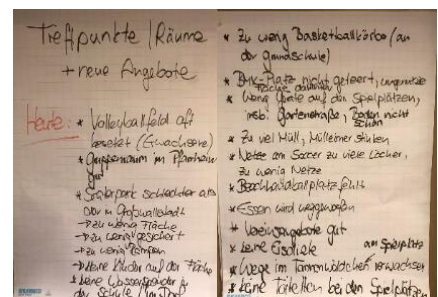 Treffpunkte / Räume
+ neue Angebote
Heute:
* Volleyballfeld oft
besetzt (Erwachsene)
* Gruppenraum im Pfarrheim
gut
* Skaterpark schlechter als
der in Großwallstadt
→ zu wenig Fläche
→ zu wenig gesichert
→ zu wenig Rampen
→ kleine Kinder auf der Fläche
* keine Wasserspender in
der Schule
* Zu wenig Basketballkörbe (an
der Grundschule)
* BMX-Platz nicht geteert, ungenutzte
Fläche dahinter
* Wenig Geräte auf den Spielplätzen,
insb. Gartenstraße, Boden nicht
schön
* Zu viel Müll, Mülleimer stinken
* Netze am Soccer zu viele Löcher,
zu wenig Netze
* Beachvolleyballplatz fehlt
* Essen wird weggeworfen
* Vereinsangebote gut
* keine Eisdiele
am Spielplatz
* Wege im Tannenwäldchen verwachsen
* keine Toiletten bei den Spielplätzen